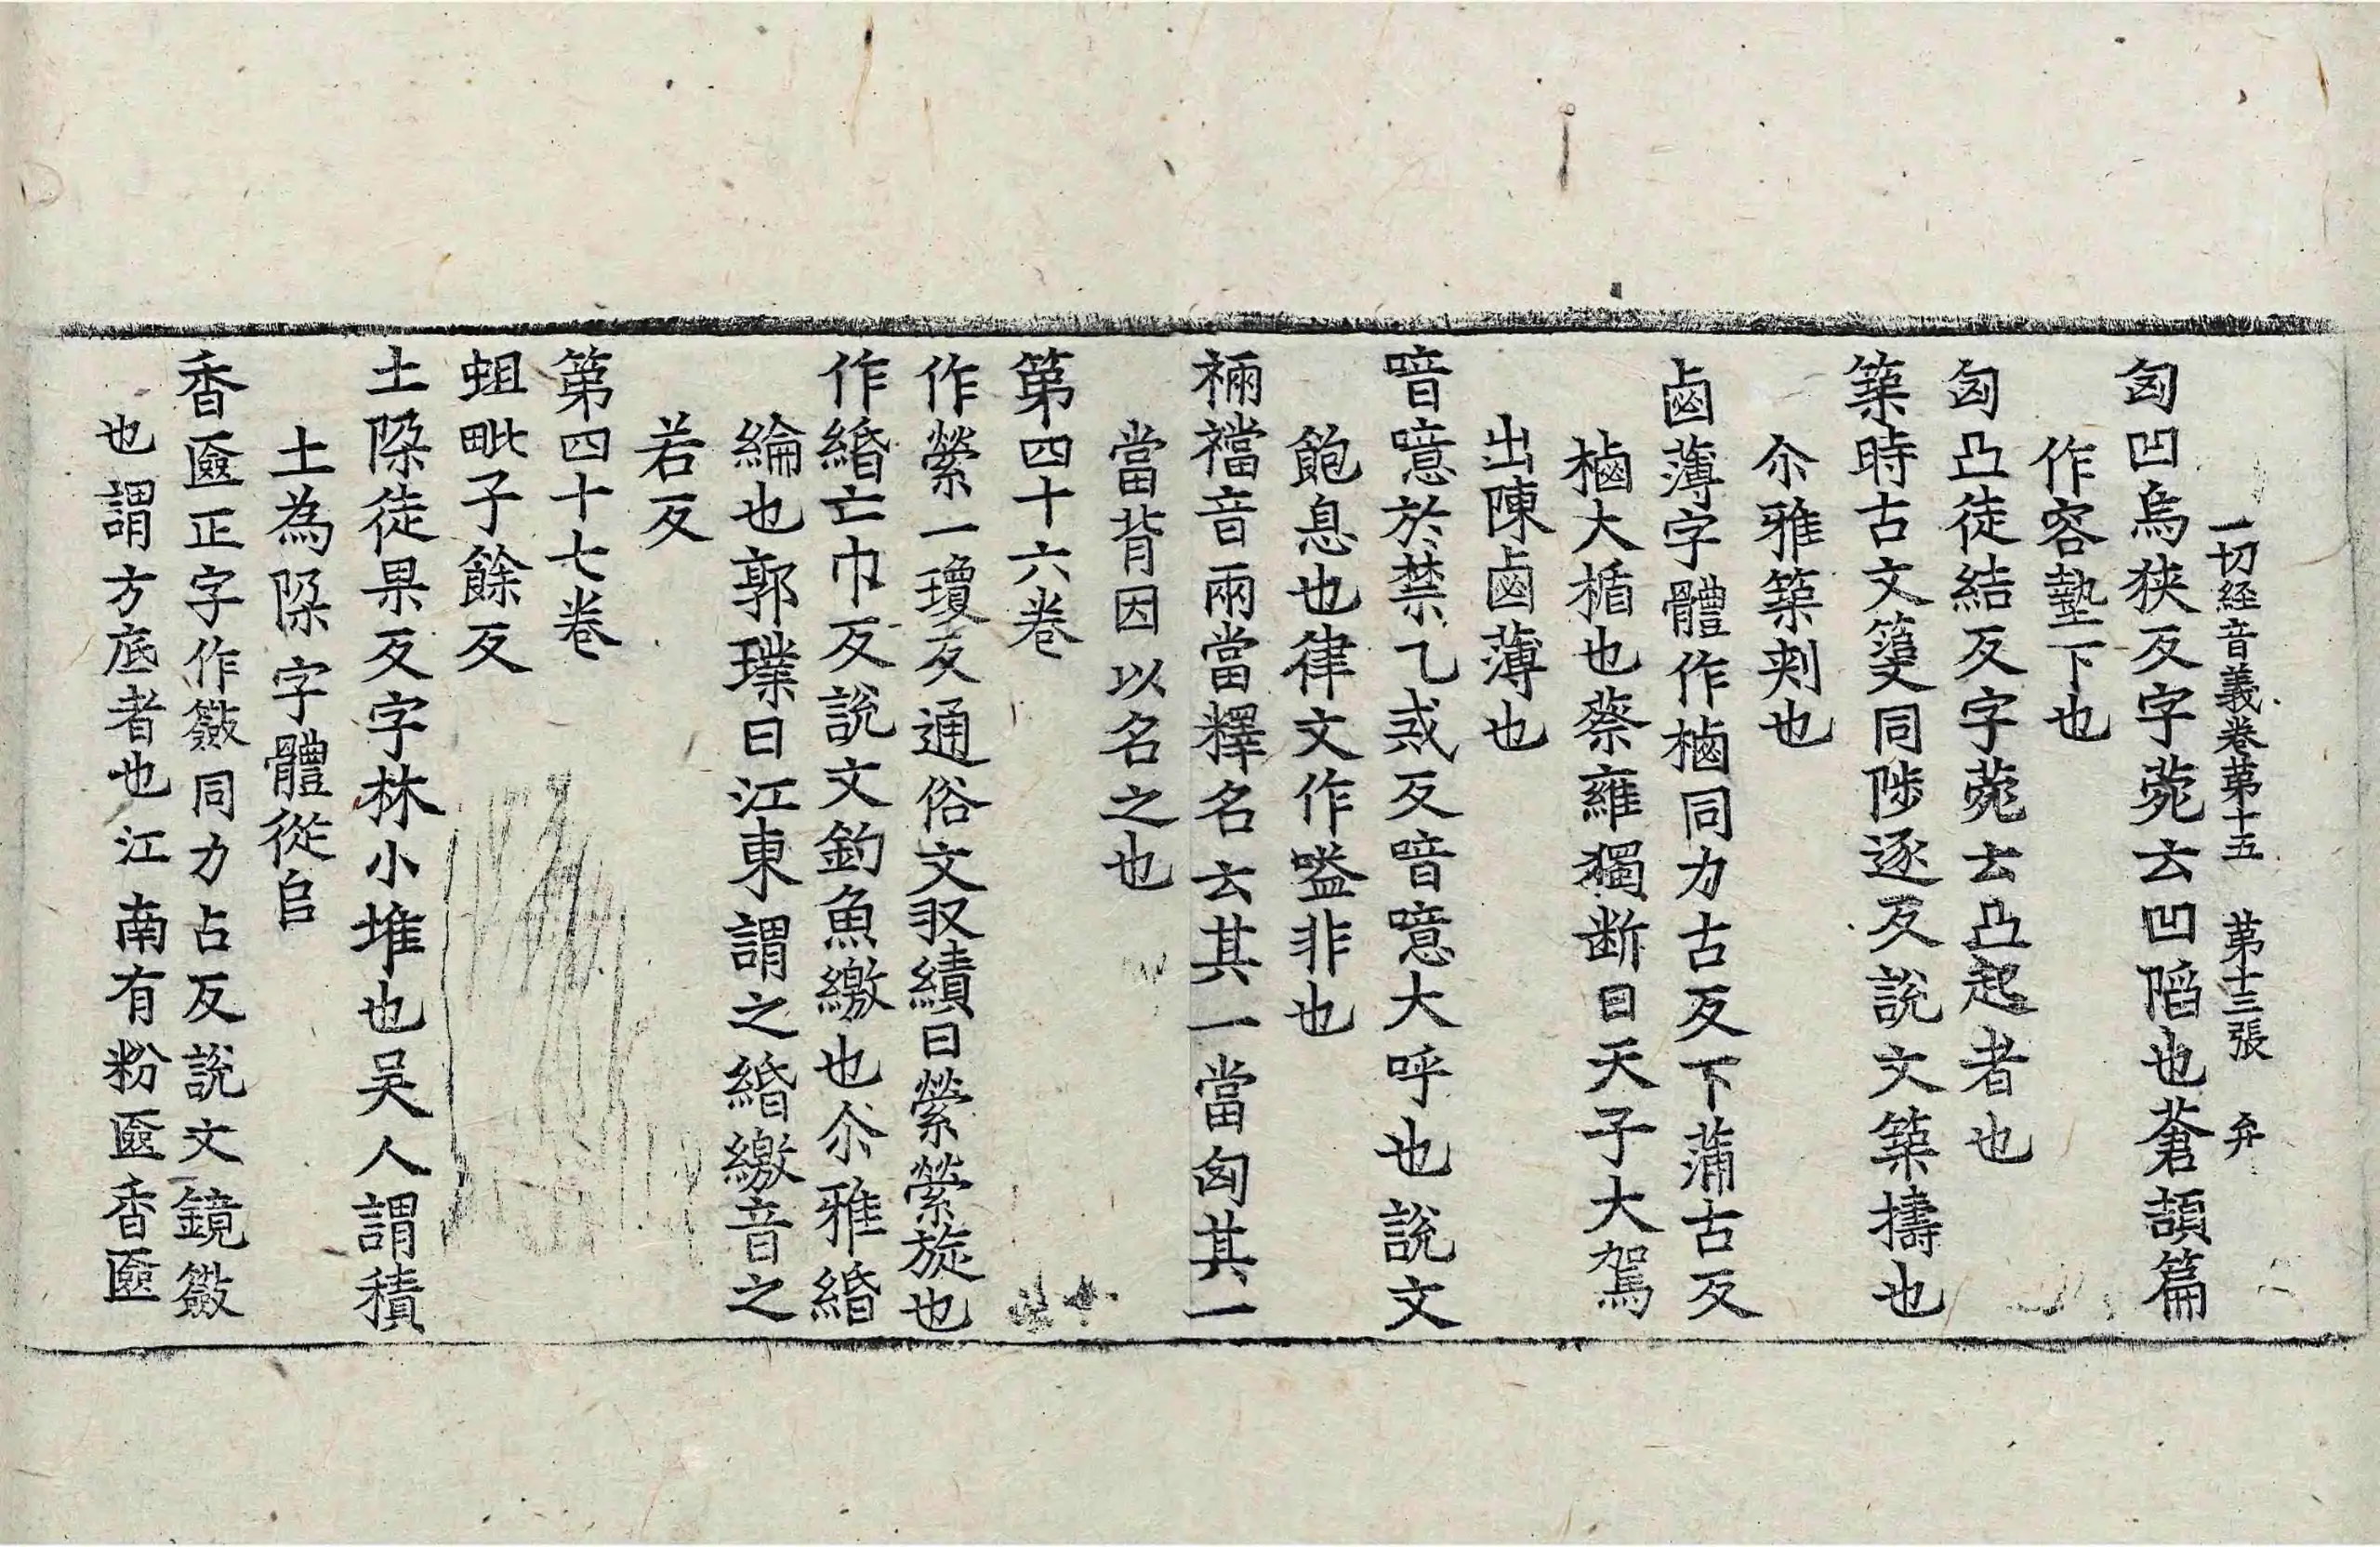 一切経音義卷第十五　第十三張　弁
匈凹烏狹反字苑云凹陷也蒼頡篇
作容墊下也
匈凸徒結反字苑云凸起者也
築時古文𥱼同陟逐反說文築擣也
尒雅築剌也
鹵薄字體作樐同力古反下蒲古反
樐大楯也蔡雍獨断曰天子大駕
出陳鹵薄也
喑噫於禁乙戒反喑噫大呼也說文
飽息也律文作嗌非也
裲襠音兩當釋名云其一當匈其一
當背因以名之也
第四十六卷
作縈一瓊反通俗文収績曰縈縈旋也
作緡亡巾反說文釣魚繳也尒雅緡
綸也郭璞曰江東謂之緡繳音之
若反
第四十七卷
蛆毗子餘反
土陊徒果反字林小堆也吴人謂積
土為陊字體從𠂤
香匳正字作籢同力占反說文鏡籢
也謂方底者也江南有粉匳香匳